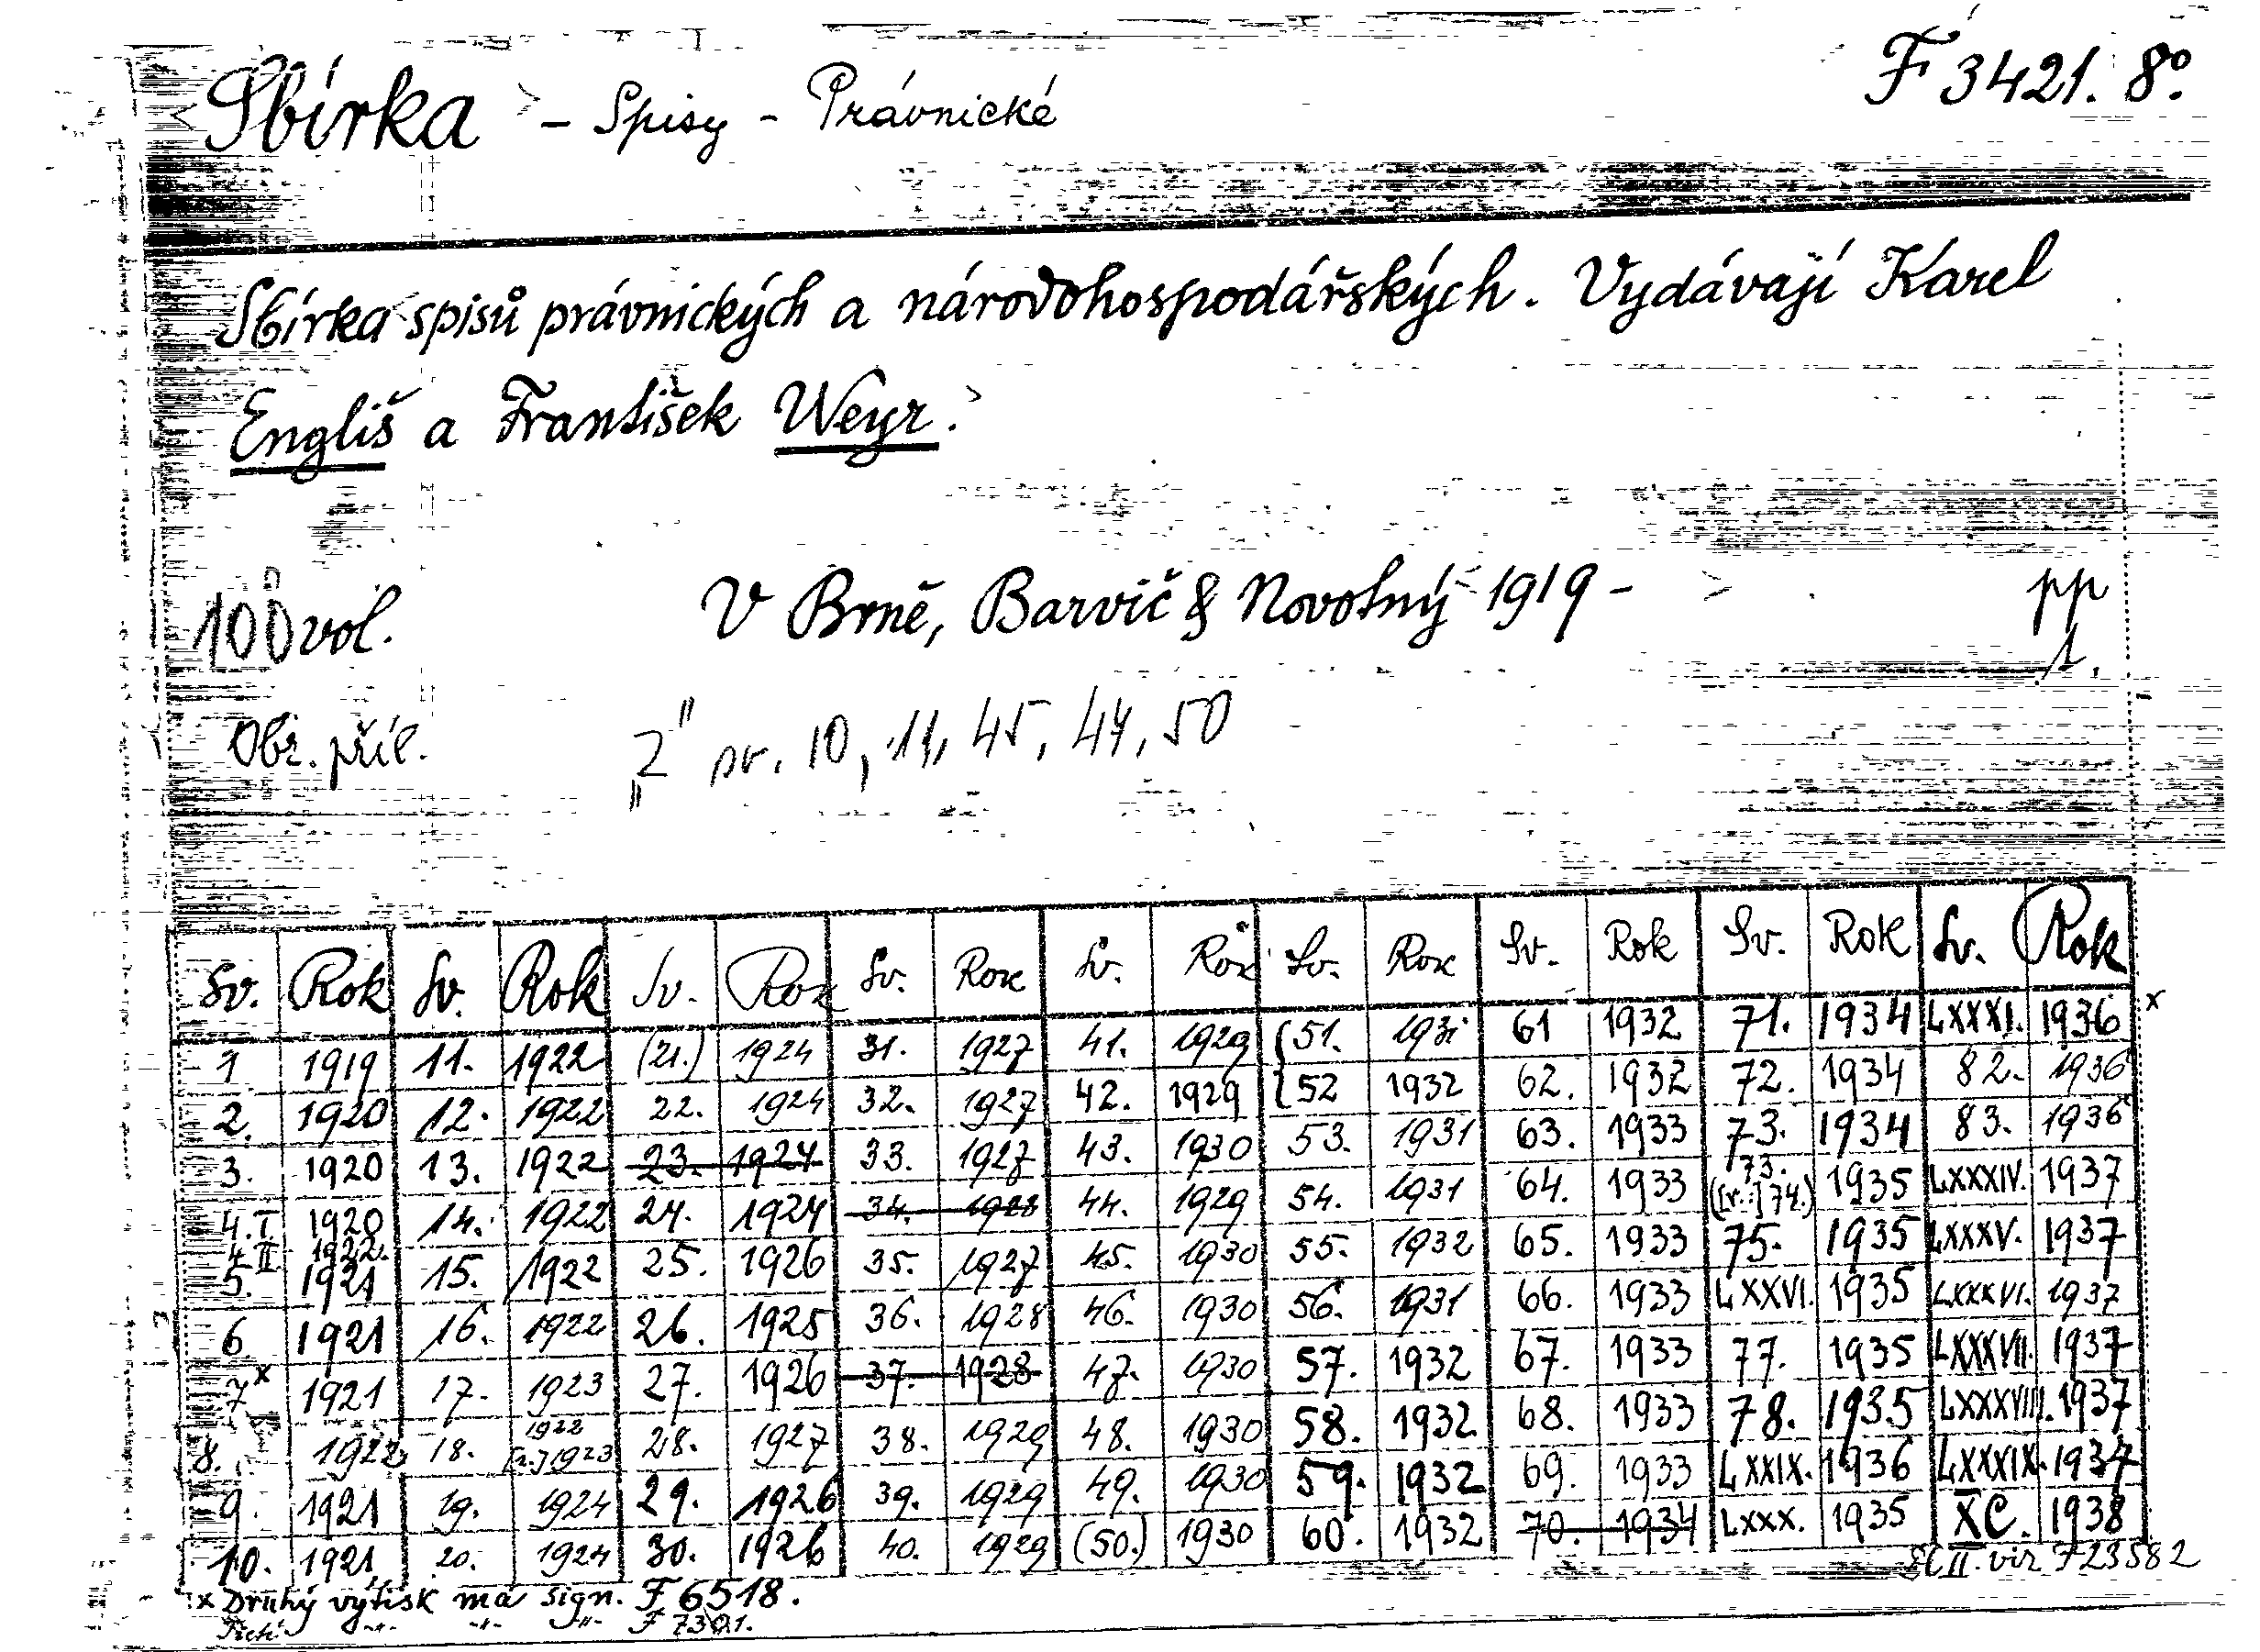 Sbírka - Spisy - Právnické F 3421. 8º.
Sbírka spisů právnických a národohospodářských. Vydávají Karel
Engliš a František Weyr.
100 vol. V Brně, Barvič & Novotný 1919 - pp
1.
Obr. příl. "2" sv. 10, 11, 45, 47, 50
Sv. Rok Sv. Rok Sv. Rok Sv. Rok Sv. Rok Sv. Rok Sv. Rok Sv. Rok Sv. Rok
1 1919 11. 1922 (21.) 1924 31. 1927 41. 1929 51. 1931 61 1932 71. 1934 LXXXI. 1936 x
2. 1920 12. 1922 22. 1924 32. 1927 42. 1929 52 1932 62. 1932 72. 1934 82. 1936
3. 1920 13. 1922 23. 1924 33. 1927 43. 1930 53. 1931 63. 1933 73. 1934 83. 1936
4.I. 1920 14. 1922 24. 1924 34. 1928 44. 1929 54. 1931 64. 1933 73. ([r.:] 74.) 1935 LXXXIV. 1937
4.II 1922.
5. 1921 15. 1922 25. 1926 35. 1927 45. 1930 55. 1932 65. 1933 75. 1935 LXXXV. 1937
6 1921 16. 1922 26. 1925 36. 1928 46. 1930 56. 1931 66. 1933 LXXVI. 1935 LXXXVI. 1937
7 x 1921 17. 1923 27. 1926 37. 1928 47. 1930 57. 1932 67. 1933 77. 1935 LXXXVII. 1937
8. 1922 18. 1922 [r.] 1923 28. 1927 38. 1929 48. 1930 58. 1932 68. 1933 78. 1935 LXXXVIII. 1937
9. 1921 19. 1924 29. 1926 39. 1929 49. 1930 59. 1932 69. 1933 LXXIX. 1936 LXXXIX. 1937
10. 1921 20. 1924 30. 1926 40. 1929 (50.) 1930 60. 1932 70. 1934 LXXX. 1935 XC. 1938
x Druhý výtisk má sign. F 6518. viz F 23582
Třetí -"- -"- -"- F 7301.